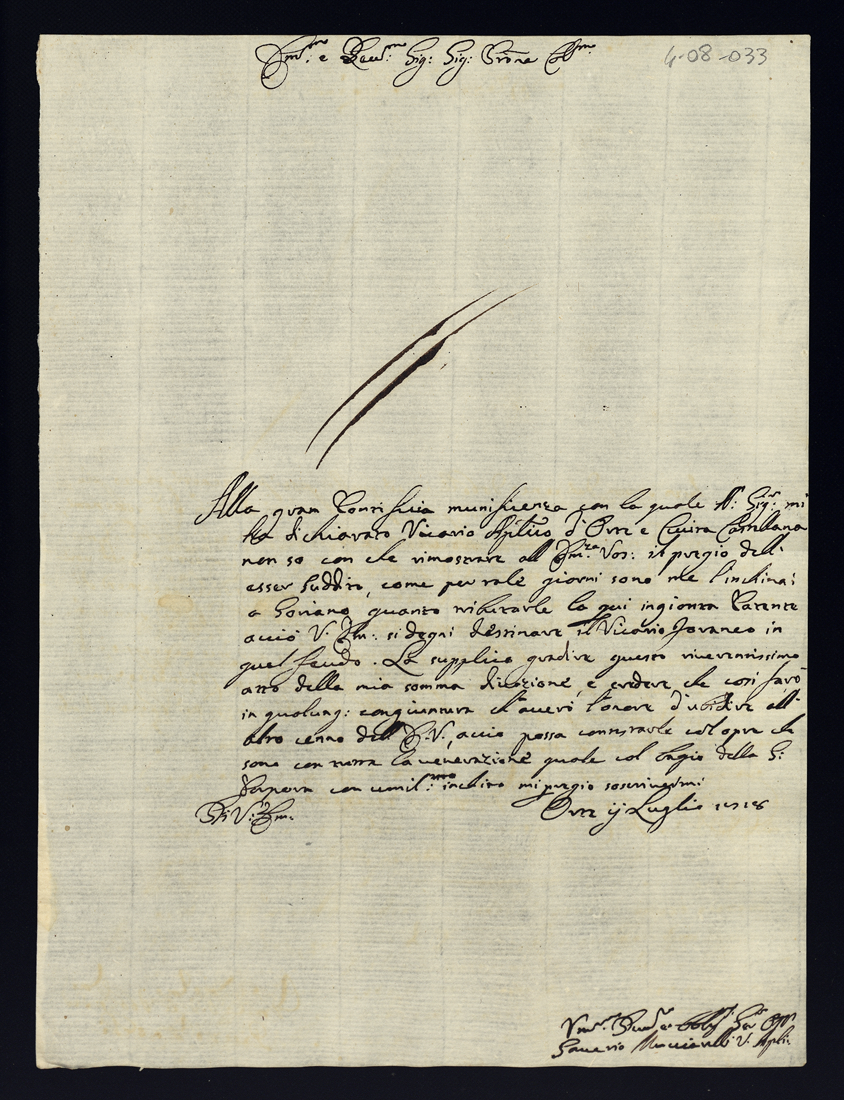 Em.mo e Rev.mo Sig: Sig: Prone Col.mo
4-08-033
Alla gran Pontificia munificenza con la quale N: Sig.re mi
ha dichiarato Vicario Aplico d'Orte e Civita Castellana
non so con che rimostrare all' Em.za Vos: il pregio dell'
esser suddito, come per tale giorni sono me l'inchinai
a Soriano, quanto tributarle la qui ingionta Patente
acciò V. Em: si degni destinare il Vicario Foraneo in
quel feudo. La supplico gradire questo riverentissimo
atto della mia somma divozione, e credere che così farò
in qualunq: congiuntura ch'averò l'onore d'ubidire all'
altro cenno dell' E.V., acciò possa contestarle coll'opre che
sono con tutta la venerazione quale col bagio della S:
Porpora con umil.mo inchino mi pregio soscrivermi
Di V: Em.
Orte ij Luglio
Um.mo Dev.mo et Obblig.mo Ser.re
Saverio V. Apli: